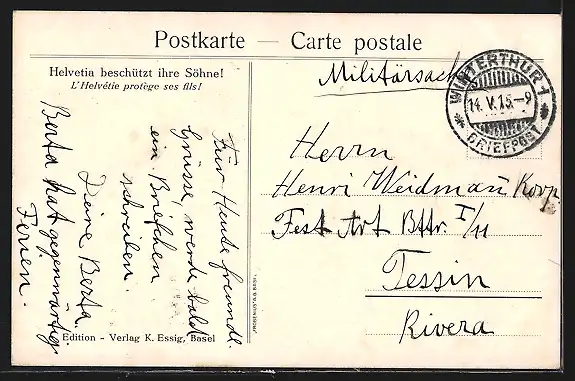 Postkarte — Carte postale
Helvetia beschützt ihre Söhne!
L'Helvétie protège ses fils!
Militärsache
WINTERTHUR 1
14. V. 15. – 9
BRIEFPOST
Herrn
Henri Weidmañ Korp.
Fest Art Bttr. I/11
Tessin
Rivera
Für Heute freundl.
Grüsse, werde bald
ein Briefchen
schreiben.
Deine Berta.
Berta hat gegenwärtig
Ferien.
Edition - Verlag K. Essig, Basel